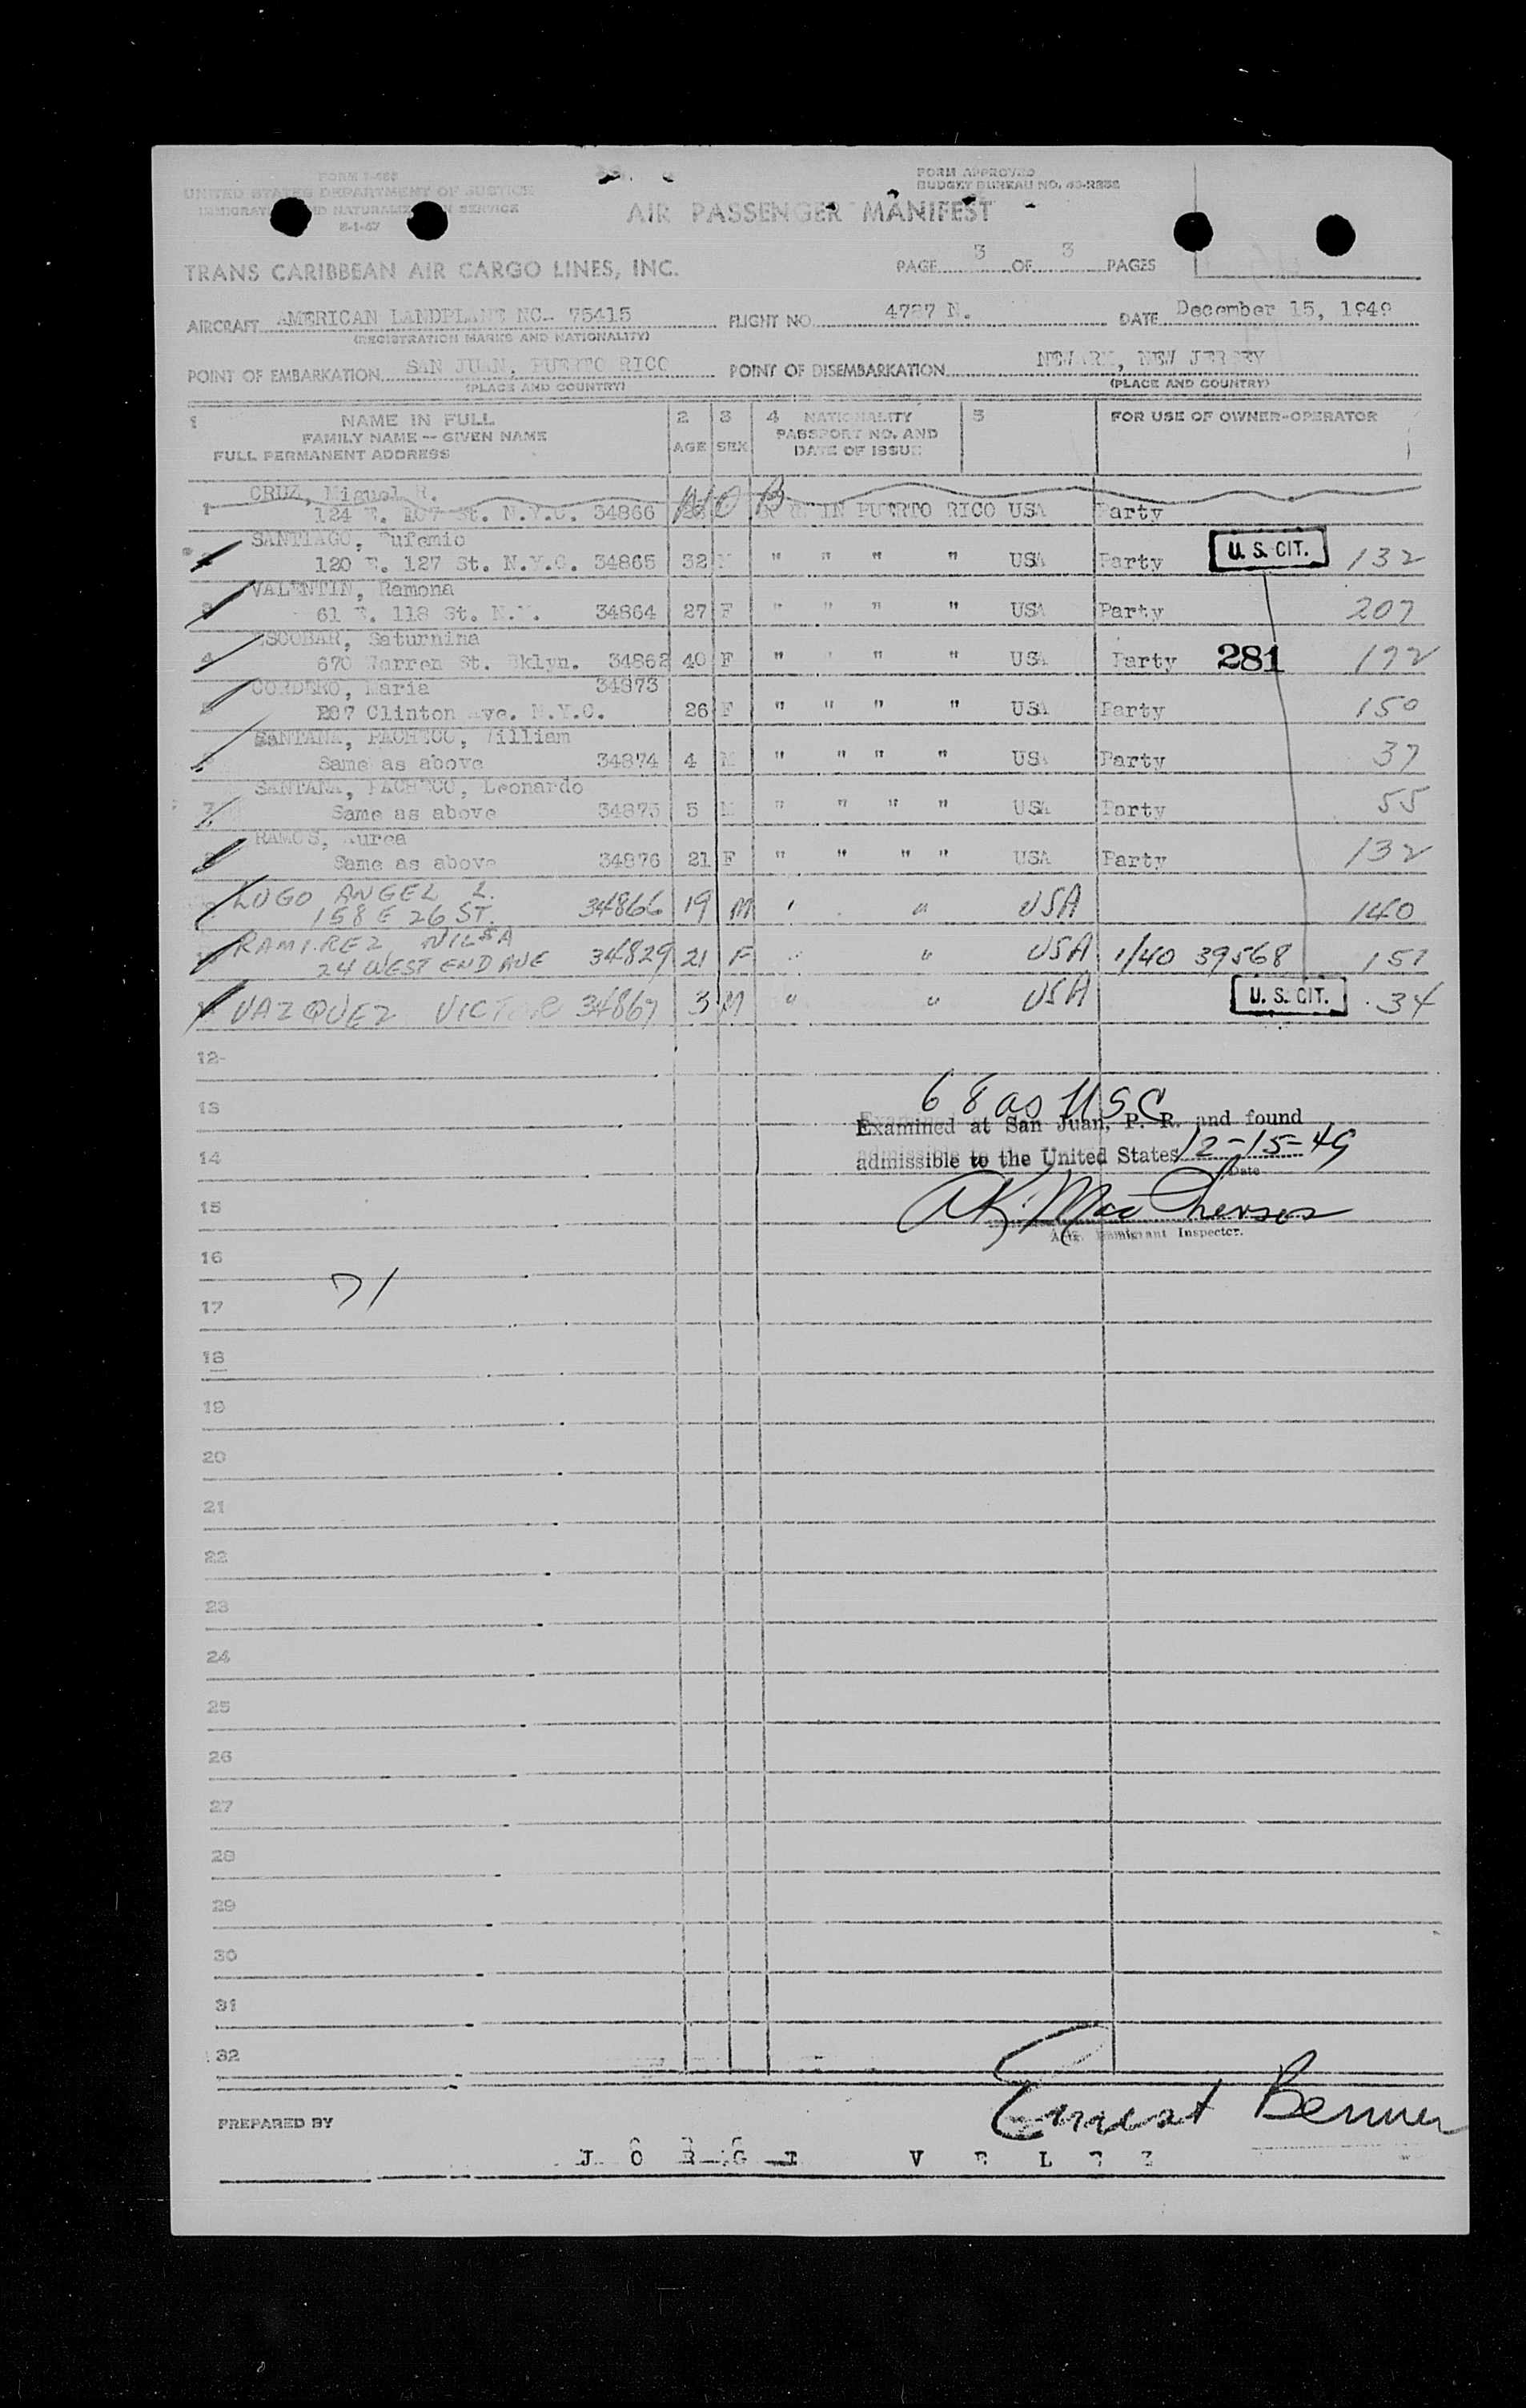 FORM I-466
UNITED STATES DEPARTMENT OF JUSTICE
IMMIGRATION AND NATURALIZATION SERVICE
FORM APPROVED
BUDGET BUREAU NO. 43-R238
AIR PASSENGER MANIFEST
TRANS CARIBBEAN AIR CARGO LINES, INC.
PAGE 3 OF 3 PAGES
AIRCRAFT AMERICAN LANDPLANE NC- 75415 FLIGHT NO. 4787 N. DATE December 15, 1949
(REGISTRATION MARKS AND NATIONALITY)
POINT OF EMBARKATION SAN JUAN, PUERTO RICO POINT OF DISEMBARKATION NEWARK, NEW JERSEY
(PLACE AND COUNTRY) (PLACE AND COUNTRY)
1 NAME IN FULL 2 3 4 NATIONALITY 5 FOR USE OF OWNER-OPERATOR
FAMILY NAME — GIVEN NAME PASSPORT NO. AND
FULL PERMANENT ADDRESS AGE SEX DATE OF ISSUE
CRUZ, Miguel R. NOB
1 124 E. 107 St. N.Y.C. 34866 BORN IN PUERTO RICO USA Party
SANTIAGO, Eufemio
120 E. 127 St. N.Y.C. 34865 32 M " " " " USA Party U. S. CIT. 132
VALENTIN, Ramona
3 61 E. 118 St. N.Y. 34864 27 F " " " " USA Party 207
ESCOBAR, Saturnina
4 670 Warren St. Bklyn. 34862 40 F " " " " USA Party 281 172
CORDERO, Maria 34873
287 Clinton Ave. N.Y.C. 26 F " " " " USA Party 150
SANTANA, PACHECO, William
Same as above 34874 4 M " " " " USA Party 37
SANTANA, PACHECO, Leonardo
7 Same as above 34875 5 M " " " " USA Party 55
RAMOS, Aurea
8 Same as above 34876 21 F " " " " USA Party 132
LUGO ANGEL L.
158 E 26 ST. 34866 19 M " " USA 140
RAMIREZ NILSA
24 WEST END AVE 34829 21 F " " USA 1/40 39568 157
VAZQUEZ VICTOR 34867 3 M " " USA U. S. CIT. 34
12
68 as USC
13 Examined at San Juan, P. R. and found
14 admissible to the United States 12-15-49
Date
15 A.K. MacPherson
Immigrant Inspector.
16
71
17
18
19
20
21
22
23
24
25
26
27
28
29
30
31
32
Ernest Benner
PREPARED BY
JORGE VELEZ